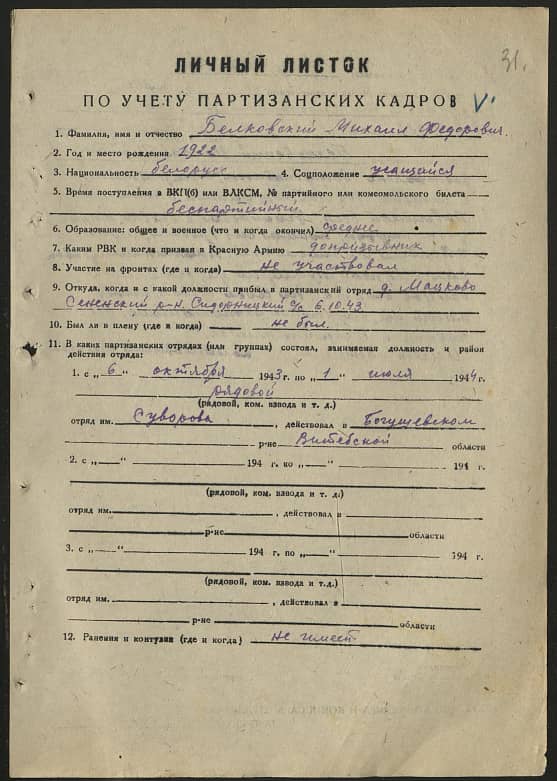 31.
ЛИЧНЫЙ ЛИСТОК
ПО УЧЕТУ ПАРТИЗАНСКИХ КАДРОВ V
1. Фамилия, имя и отчество Белковский Михаил Федорович.
2. Год и место рождения 1922
3. Национальность белорусс 4. Соцположение учащийся
5. Время поступления в ВКП(б) или ВЛКСМ, № партийного или комсомольского билета
беспартийный
6. Образование: общее и военное (что и когда окончил) средне
7. Каким РВК и когда призван в Красную Армию допризывник
8. Участие на фронтах (где и когда) не участвовал
9. Откуда, когда и с какой должности прибыл в партизанский отряд д. Мацково
Сенненский р-н. Сидорницкий с/с 6.10.43.
10. Был ли в плену (где и когда) не был.
11. В каких партизанских отрядах (или группах) состоял, занимаемая должность и район
действия отряда:
1. с „6" октября 1943 г. по „1" июля 1944 г.
рядовой
(рядовой, ком. взвода и т. д.)
отряд им. Суворова, действовал в Богушевском
р-не Витебской области
2. с „—" 194 г. по „—" 194 г.
(рядовой, ком. взвода и т. д.)
отряд им. , действовал в
р-не области
3. с „—" 194 г. по „—" 194 г.
(рядовой, ком. взвода и т.д.)
отряд им. , действовал в
р-не области
12. Ранения и контузии (где и когда) не имеет